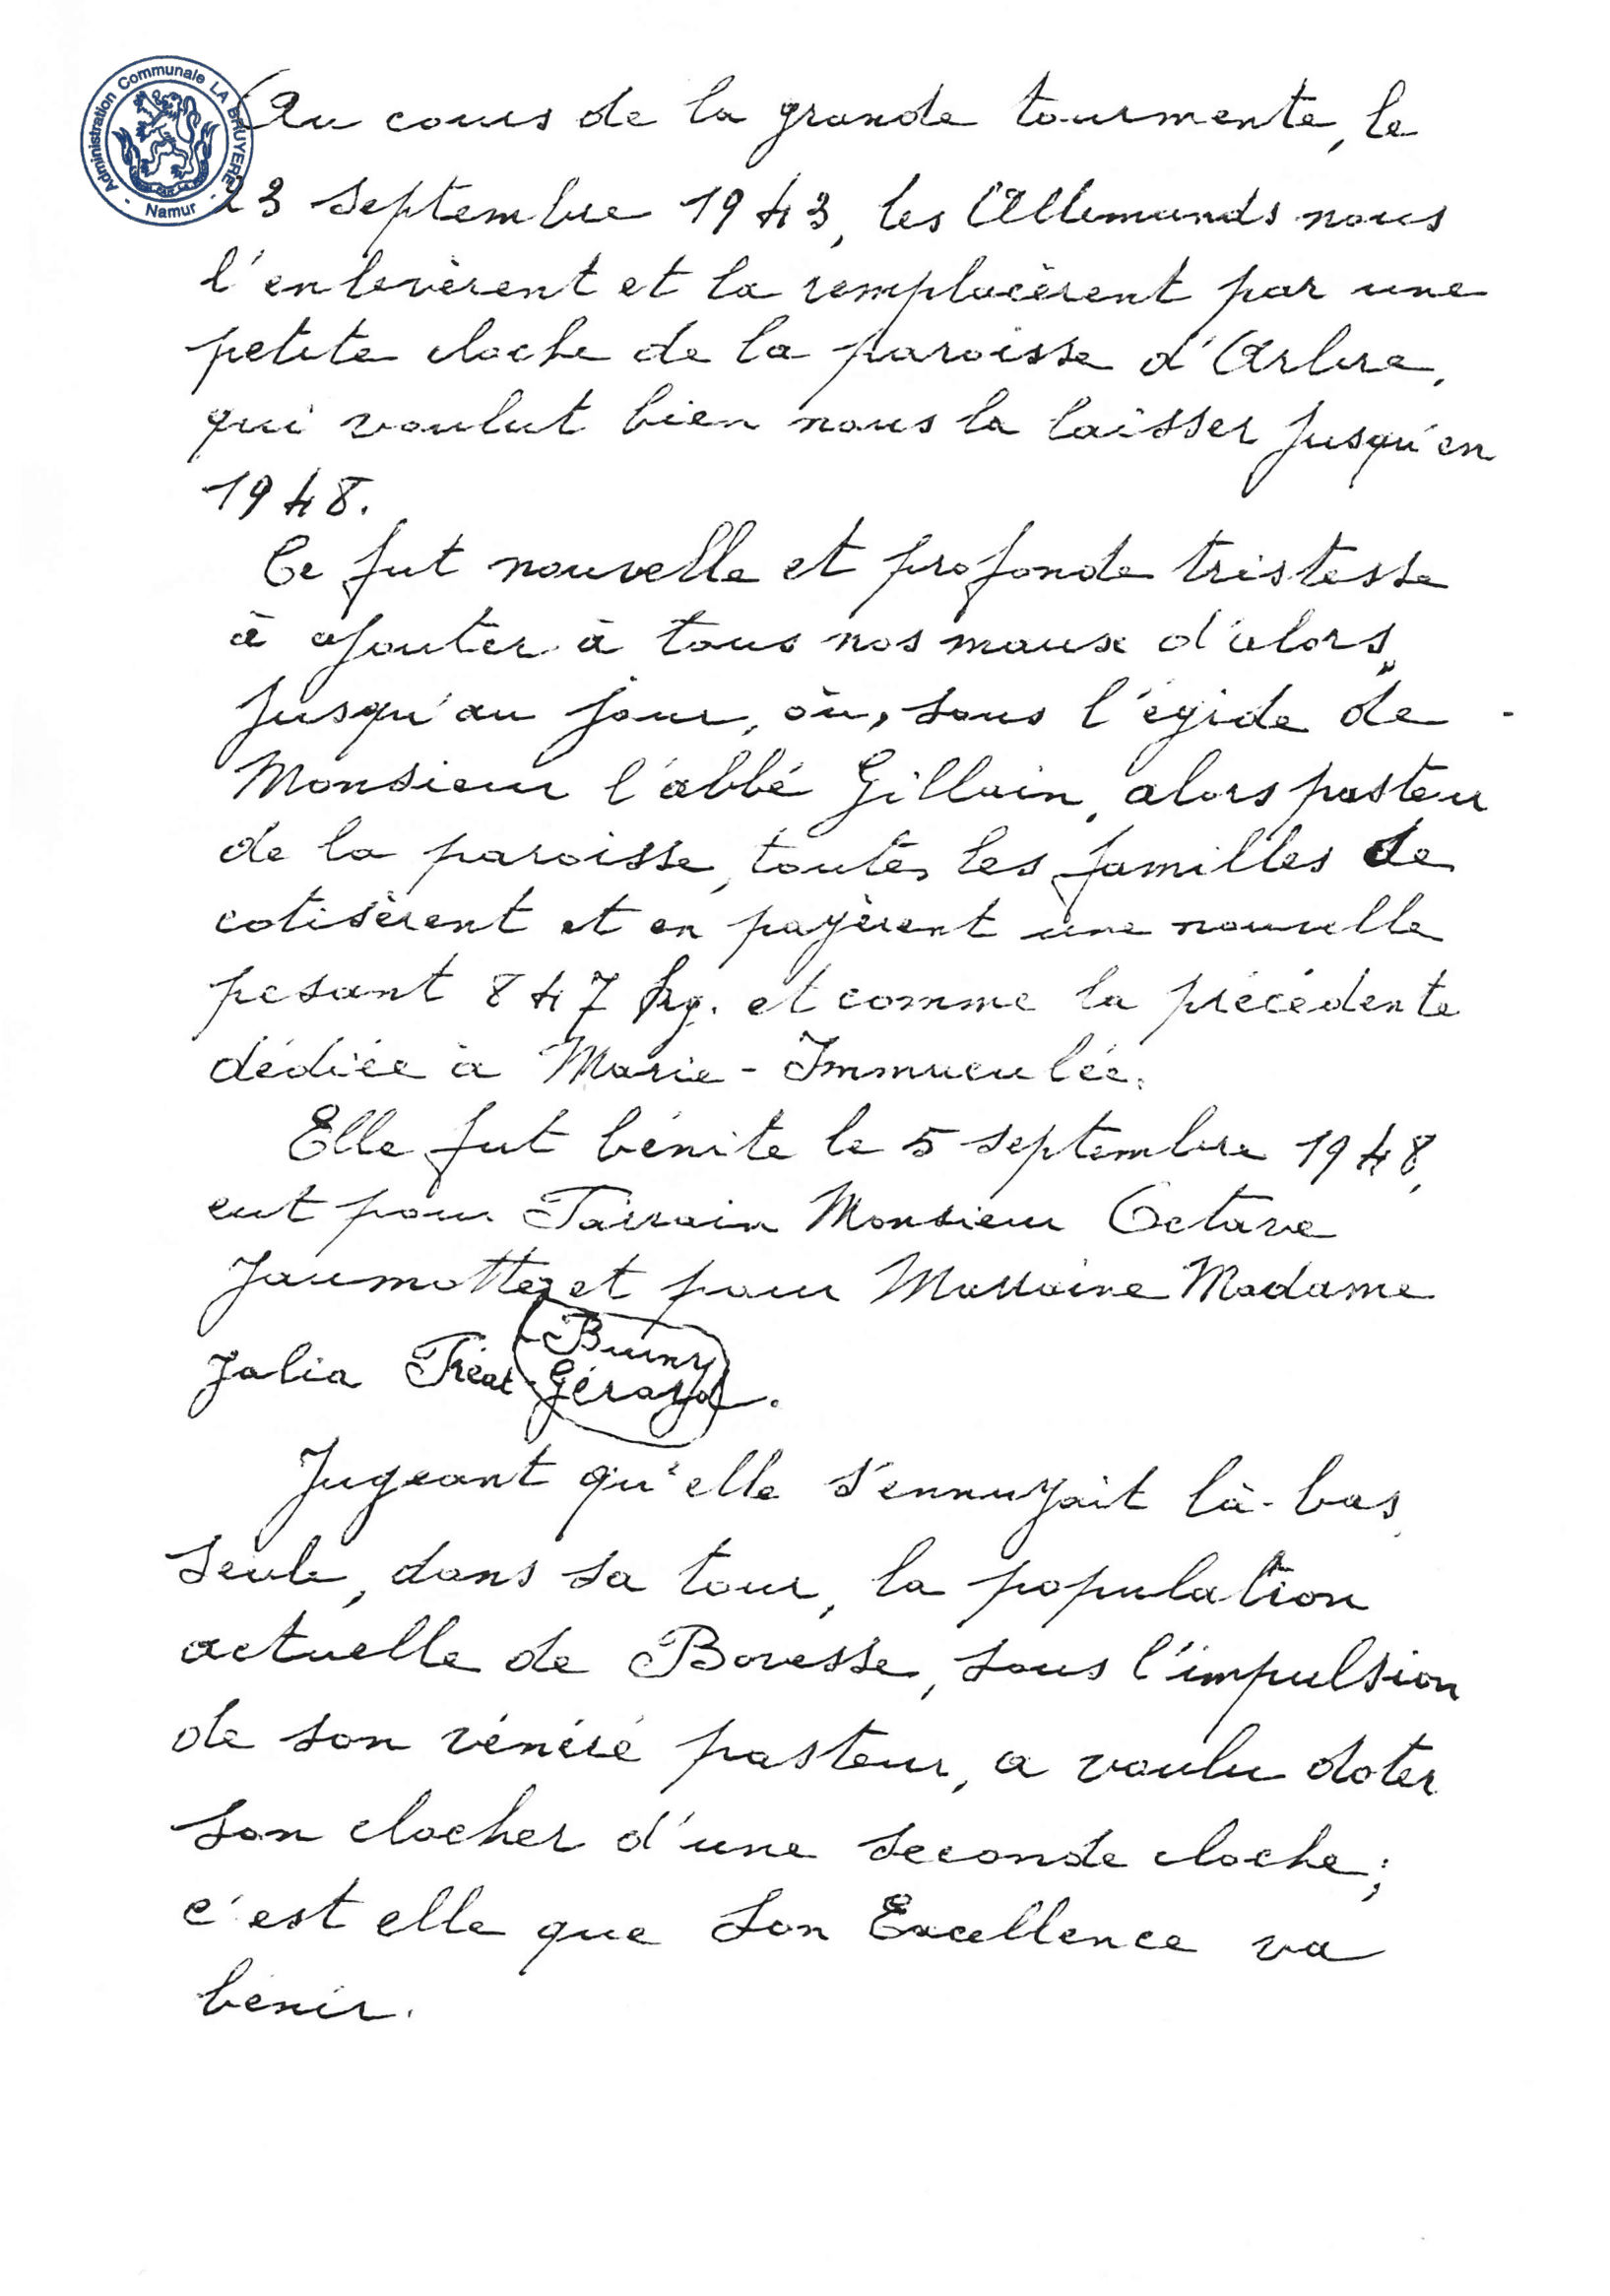 Administration Communale LA BRUYERE
- Namur -
Au cours de la grande tourmente, le
23 septembre 1943, les Allemands nous
l'enlevèrent et la remplacèrent par une
petite cloche de la paroisse d'Arbre,
qui voulut bien nous la laisser jusqu'en
1948.
Ce fut nouvelle et profonde tristesse
à ajouter à tous nos maux d'alors,
jusqu'au jour, où, sous l'égide de
Monsieur l'abbé Gillain, alors pasteur
de la paroisse, toutes les familles se
cotisèrent et en payèrent une nouvelle
pesant 847 kg. et comme la précédente
dédiée à Marie-Immaculée.
Elle fut bénite le 5 septembre 1948,
eut pour Parrain Monsieur Octave
Jaumotte, et pour Marraine Madame
Burny
Julia Gérard.
Jugeant qu'elle s'ennuyait là-bas
seule, dans sa tour, la population
actuelle de Bovesse, sous l'impulsion
de son vénéré pasteur, a voulu doter
son clocher d'une seconde cloche;
c'est elle que Son Excellence va
bénir.